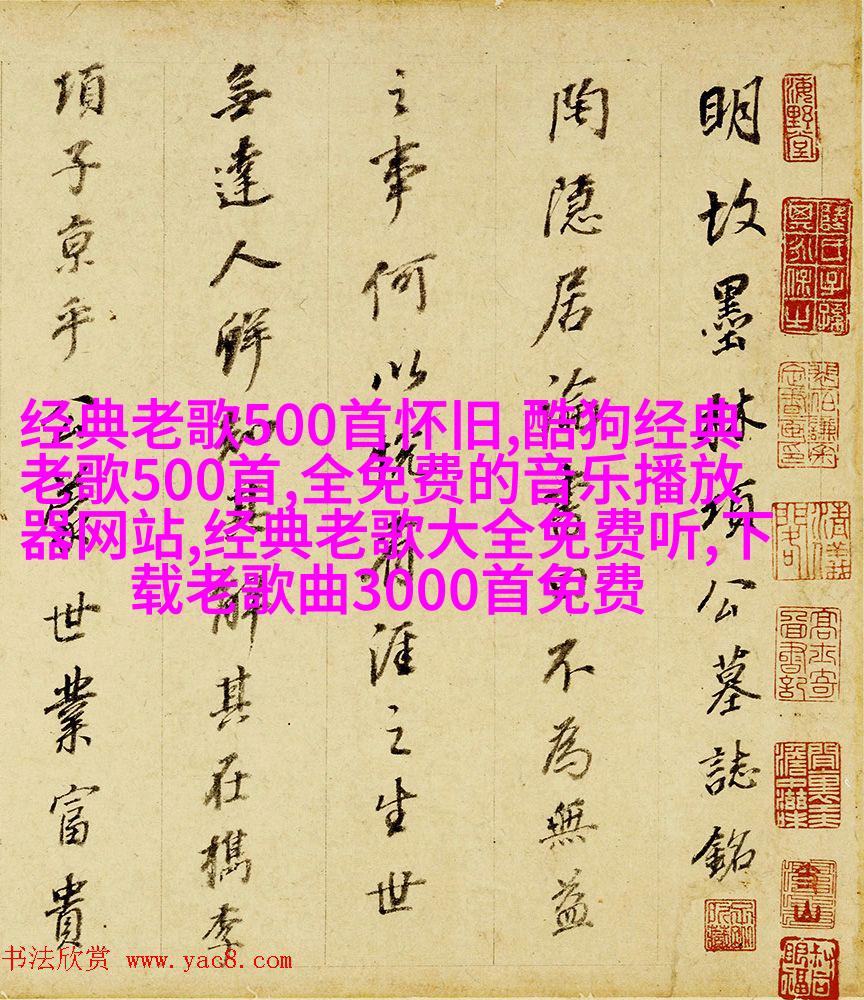 明故墨林項公墓誌銘
陶隱居論書曰不為無益
之事何以悅有涯之生世
無達人鮮知其解其在檇李
項子京乎公世業富貴
海野堂
经典老歌500首怀旧,酷狗经典
老歌500首,全免费的音乐播放
器网站,经典老歌大全免费听,下
载老歌曲3000首免费
书法欣赏 www.yac8.com